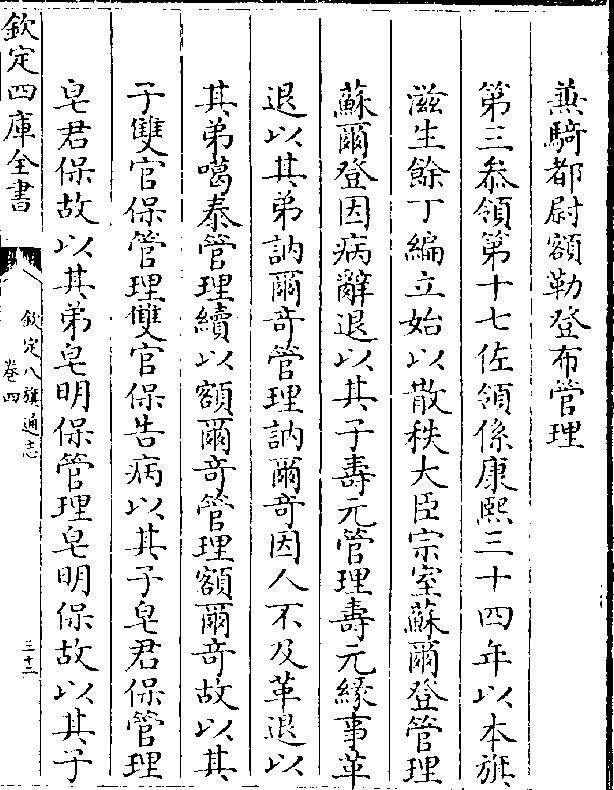 兼騎都尉額勒登布管理
第三叅領第十七佐領係康熙三十四年以本旗
滋生餘丁編立始以散秩大臣宗室蘇爾登管理
蘇爾登因病辭退以其子壽元管理壽元緣事革
退以其弟訥爾竒管理訥爾竒因人不及革退以
其弟噶泰管理續以額爾竒管理額爾竒故以其
子雙官保管理雙官保告病以其子皂君保管理
皂君保故以其弟皂明保管理皂明保故以其子
欽定四庫全書
欽定八旗通志
卷四
三十二